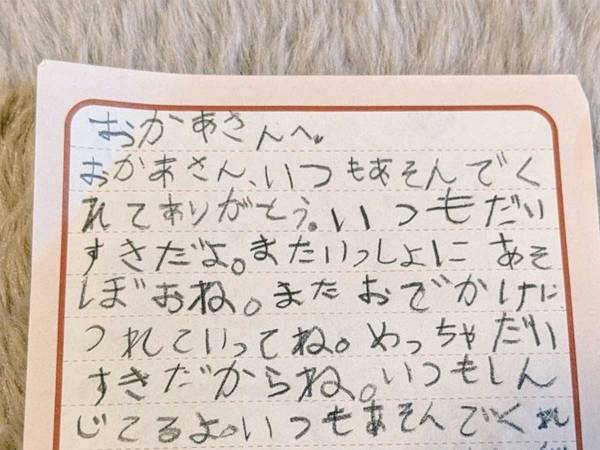 おかあさんへ。
おかあさん、いつもあそんでく
れてありがとう。いつもだい
すきだよ。またいっしょに あそ
ぼおね。また おでかけに
つれていってね。めっちゃだい
すきだからね。いつもしん
じてるよ。いつもあそんでくれ